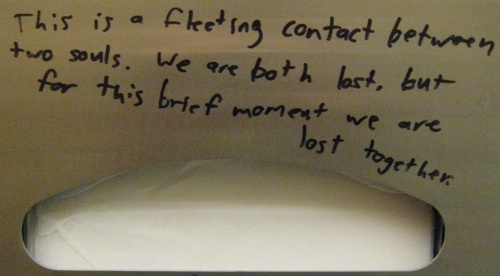 This is a fleeting contact between
two souls. We are both lost, but
for this brief moment we are
lost together.